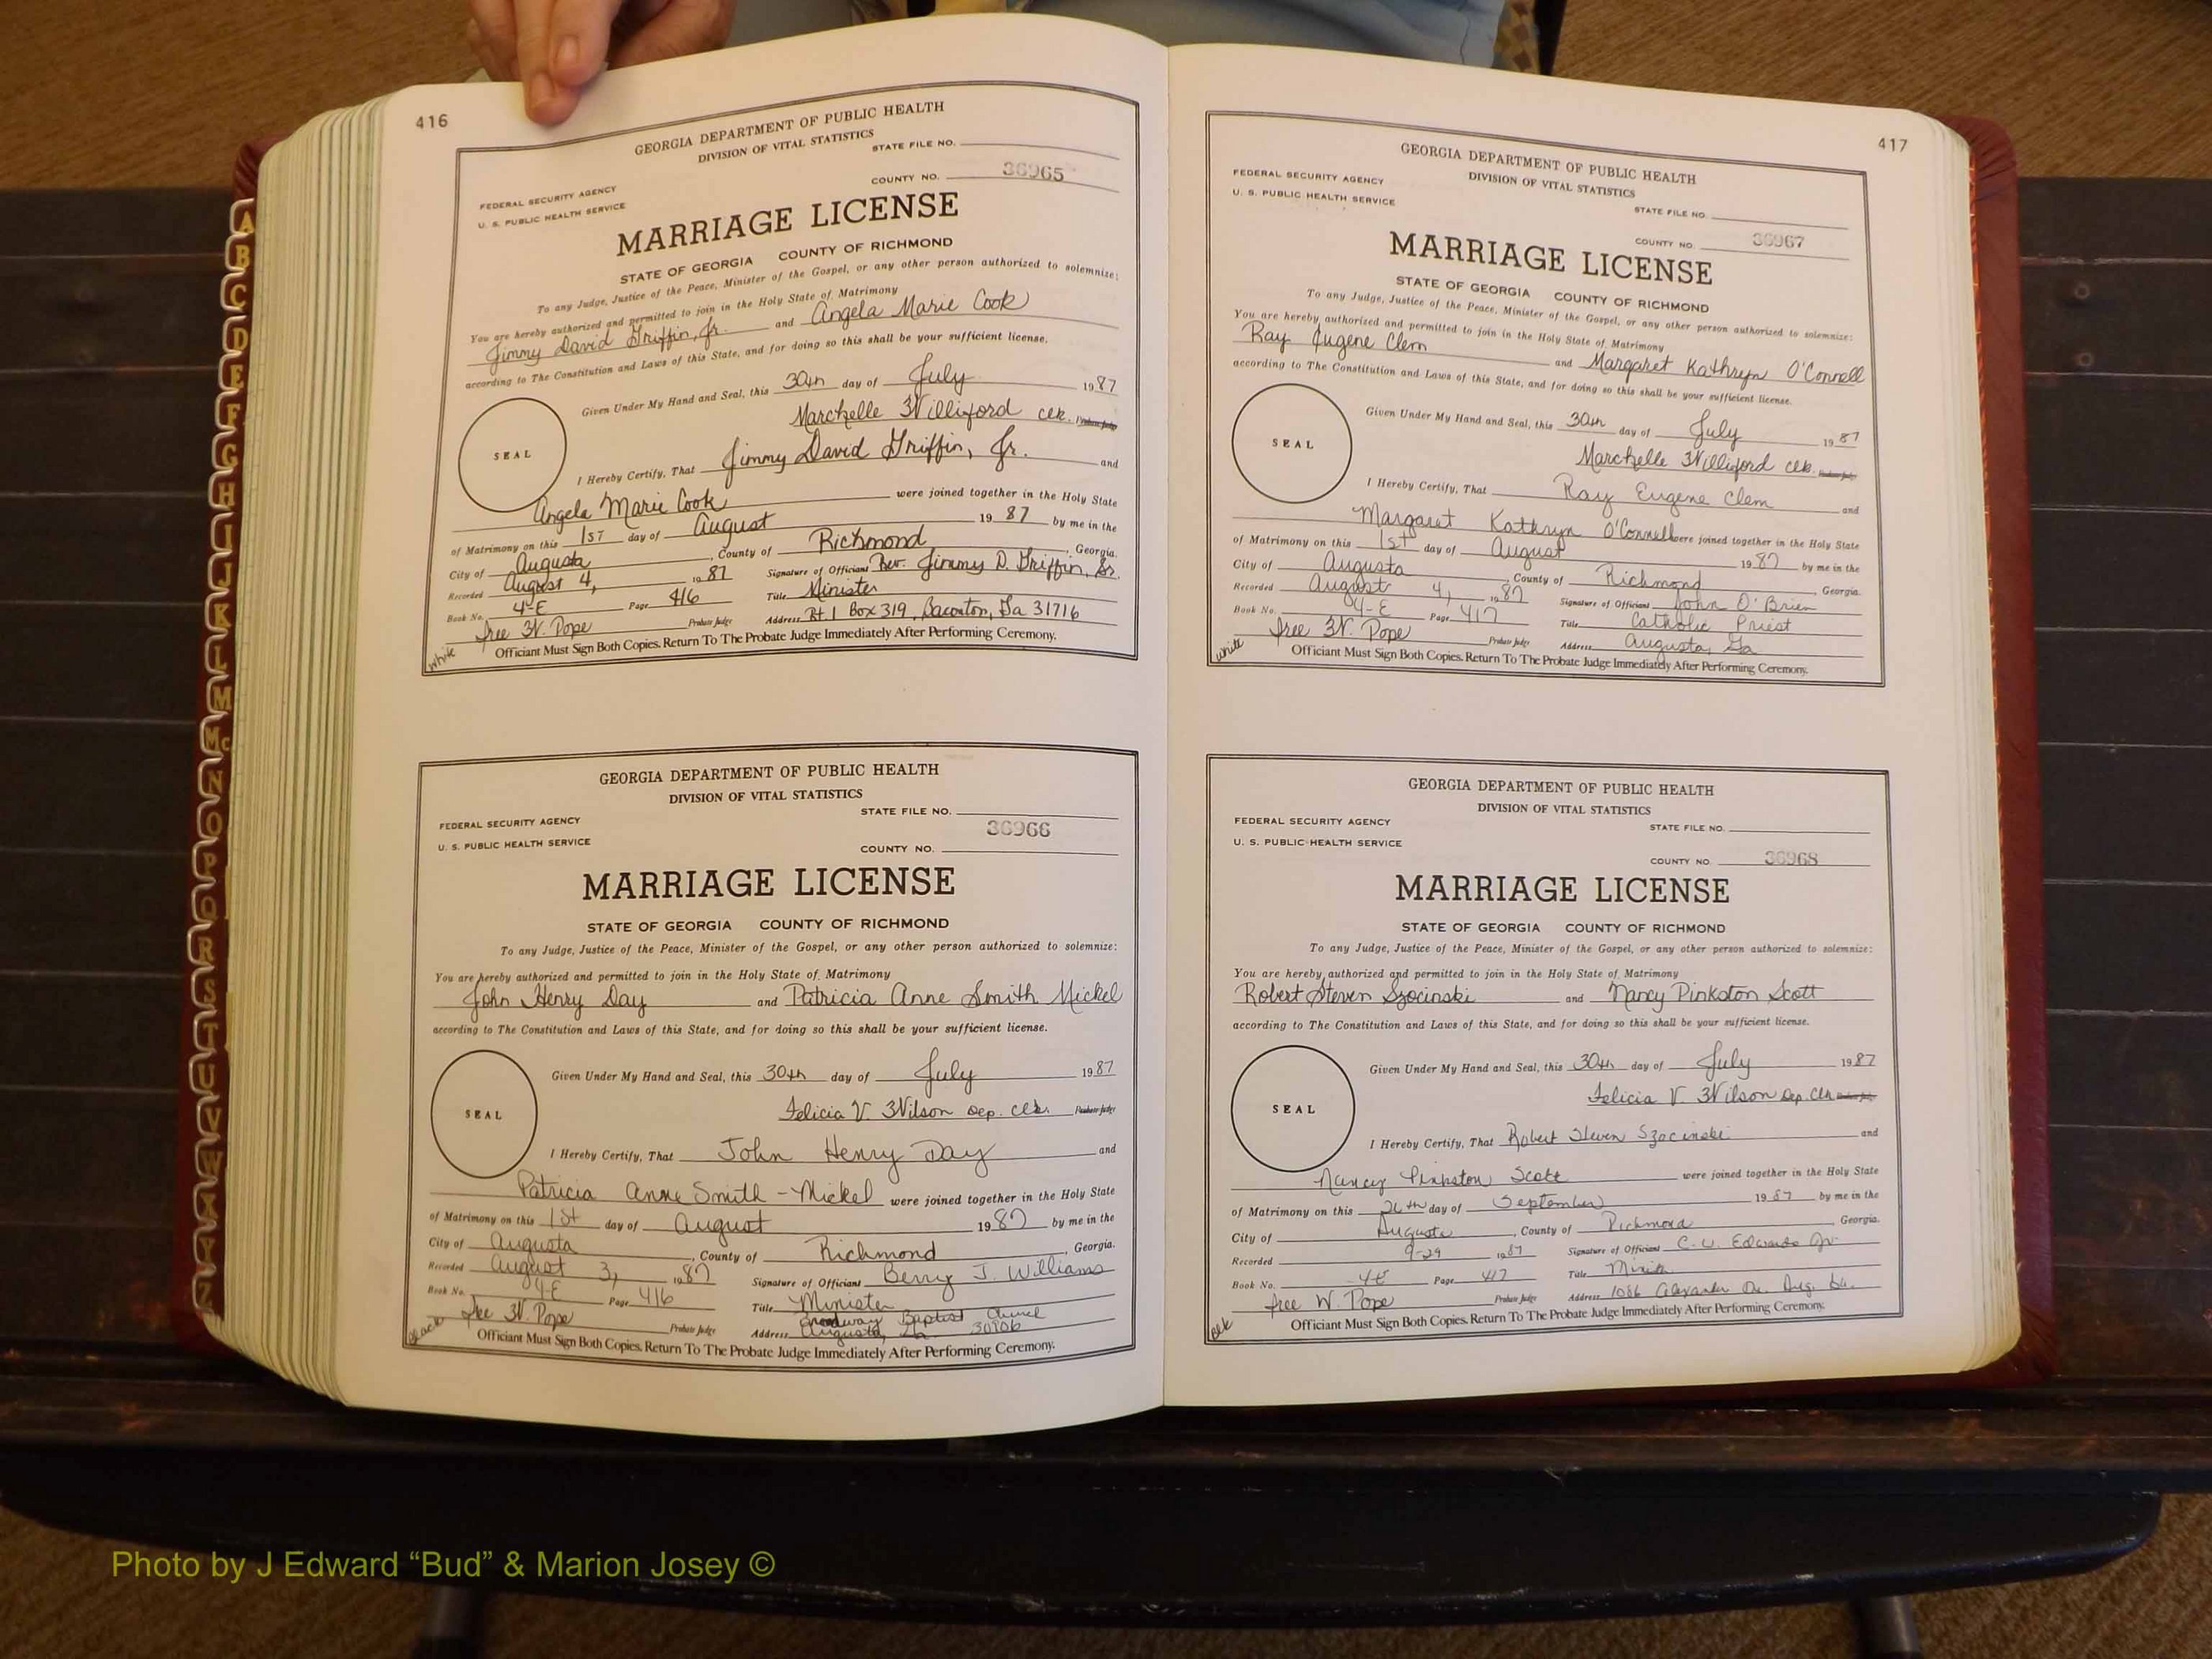 416
GEORGIA DEPARTMENT OF PUBLIC HEALTH
DIVISION OF VITAL STATISTICS
STATE FILE NO.
COUNTY NO. 36965
FEDERAL SECURITY AGENCY
U. S. PUBLIC HEALTH SERVICE
MARRIAGE LICENSE
STATE OF GEORGIA COUNTY OF RICHMOND
To any Judge, Justice of the Peace, Minister of the Gospel, or any other person authorized to solemnize:
You are hereby authorized and permitted to join in the Holy State of Matrimony
Jimmy David Griffin, Jr. and Angela Marie Cook
according to The Constitution and Laws of this State, and for doing so this shall be your sufficient license.
Given Under My Hand and Seal, this 30th day of July 1987
Marchelle Williford clk. Probate Judge
SEAL
I Hereby Certify, That Jimmy David Griffin, Jr. and
Angela Marie Cook were joined together in the Holy State
of Matrimony on this 1st day of August 1987 by me in the
City of Augusta, County of Richmond, Georgia.
Recorded August 4, 1987 Signature of Officiant Rev. Jimmy D. Griffin, Sr.
Book No. 4-E Page 416 Title Minister
W. Pope Probate Judge Address Rt. 1 Box 319, Baconton, Ga 31716
white Officiant Must Sign Both Copies. Return To The Probate Judge Immediately After Performing Ceremony.
GEORGIA DEPARTMENT OF PUBLIC HEALTH
DIVISION OF VITAL STATISTICS
STATE FILE NO.
36966
FEDERAL SECURITY AGENCY
U. S. PUBLIC HEALTH SERVICE
COUNTY NO.
MARRIAGE LICENSE
STATE OF GEORGIA COUNTY OF RICHMOND
To any Judge, Justice of the Peace, Minister of the Gospel, or any other person authorized to solemnize:
You are hereby authorized and permitted to join in the Holy State of Matrimony
John Henry Day and Patricia Anne Smith Mickel
according to The Constitution and Laws of this State, and for doing so this shall be your sufficient license.
Given Under My Hand and Seal, this 30th day of July 1987
Felicia V. Wilson Dep. Clk. Probate Judge
SEAL
I Hereby Certify, That John Henry Day and
Patricia Anne Smith-Mickel were joined together in the Holy State
of Matrimony on this 1st day of August 1987 by me in the
City of Augusta, County of Richmond, Georgia.
Recorded August 3, 1987 Signature of Officiant Berry J. Williams
Book No. 4-E Page 416 Title Minister
W. Pope Probate Judge Address Broadway Baptist Church
Augusta, Ga 30906
black Officiant Must Sign Both Copies. Return To The Probate Judge Immediately After Performing Ceremony.
417
GEORGIA DEPARTMENT OF PUBLIC HEALTH
DIVISION OF VITAL STATISTICS
FEDERAL SECURITY AGENCY
U. S. PUBLIC HEALTH SERVICE
STATE FILE NO.
COUNTY NO. 36967
MARRIAGE LICENSE
STATE OF GEORGIA COUNTY OF RICHMOND
To any Judge, Justice of the Peace, Minister of the Gospel, or any other person authorized to solemnize:
You are hereby authorized and permitted to join in the Holy State of Matrimony
Ray Eugene Clem and Margaret Kathryn O'Connell
according to The Constitution and Laws of this State, and for doing so this shall be your sufficient license.
Given Under My Hand and Seal, this 30th day of July 1987
Marchelle Williford clk. Probate Judge
SEAL
I Hereby Certify, That Ray Eugene Clem and
Margaret Kathryn O'Connell were joined together in the Holy State
of Matrimony on this 1st day of August 1987 by me in the
City of Augusta, County of Richmond, Georgia.
Recorded August 4, 1987 Signature of Officiant John O'Brien
Book No. 4-E Page 417 Title Catholic Priest
W. Pope Probate Judge Address Augusta, Ga
white Officiant Must Sign Both Copies. Return To The Probate Judge Immediately After Performing Ceremony.
GEORGIA DEPARTMENT OF PUBLIC HEALTH
DIVISION OF VITAL STATISTICS
FEDERAL SECURITY AGENCY
STATE FILE NO.
U. S. PUBLIC HEALTH SERVICE
COUNTY NO. 36968
MARRIAGE LICENSE
STATE OF GEORGIA COUNTY OF RICHMOND
To any Judge, Justice of the Peace, Minister of the Gospel, or any other person authorized to solemnize:
You are hereby authorized and permitted to join in the Holy State of Matrimony
Robert Steven Szocinski and Nancy Pinkston Scott
according to The Constitution and Laws of this State, and for doing so this shall be your sufficient license.
Given Under My Hand and Seal, this 30th day of July 1987
Felicia V. Wilson Dep. Clk Probate Judge
SEAL
I Hereby Certify, That Robert Steven Szocinski and
Nancy Pinkston Scott were joined together in the Holy State
of Matrimony on this 26th day of September 1987 by me in the
City of Augusta, County of Richmond Georgia.
Recorded 9-29 1987 Signature of Officiant C. W. Edwards Jr.
Book No. 4-E Page 417 Title
W. Pope Probate Judge Address 1086 Alexander Dr. Aug. Ga.
Officiant Must Sign Both Copies. Return To The Probate Judge Immediately After Performing Ceremony.
A
B
C
D
E
F
G
H
I
J
K
L
M
Mc
N
O
P
Q
R
S
T
U
V
W
X
Y
Z
Photo by J Edward “Bud” & Marion Josey ©